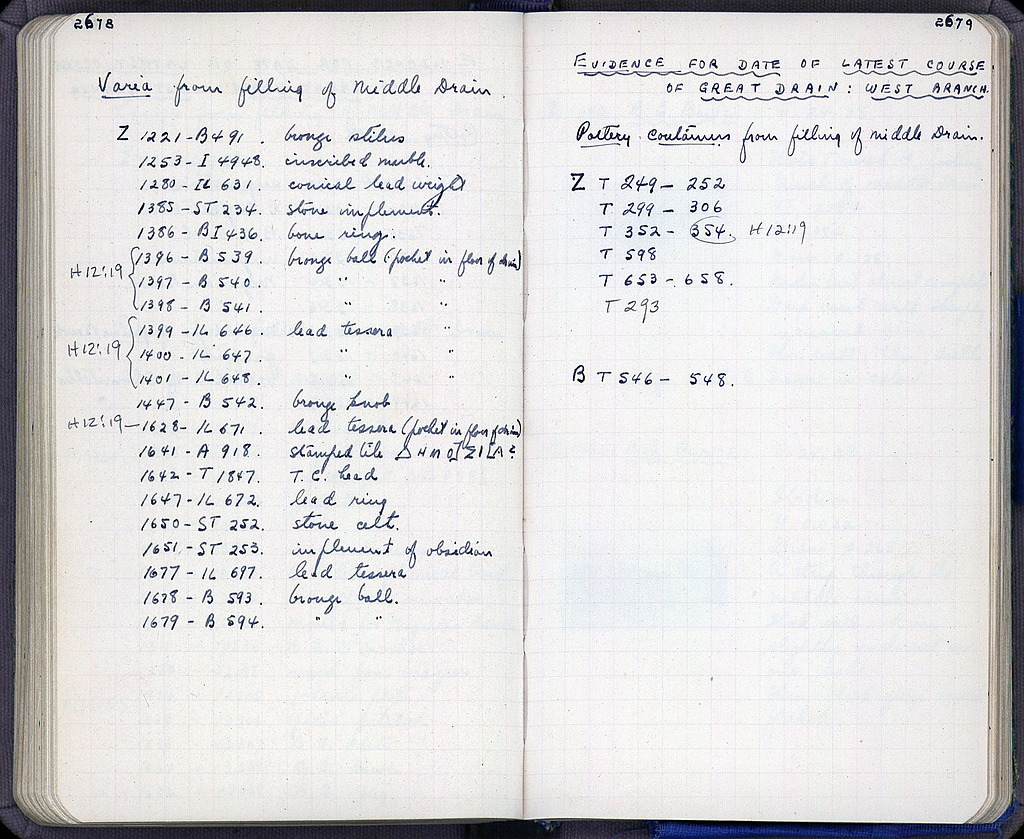 2678
Varia from filling of Middle Drain.
Z 1221 - B 491 bronze stilus
1253 - I 4948. inscribed marble.
1280 - IL 631 conical lead weight
1385 - ST 234. stone implement.
1386 - BI 436. bone ring.
H 12:19 { 1396 - B 539. bronze ball (pocket in floor of drain)
1397 - B 540. " "
1398 - B 541. " "
H 12:19 { 1399 - IL 646 lead tessera "
1400 - IL 647. " "
1401 - IL 648. " "
1447 - B 542. bronze knob
H 12:19 — 1628 - IL 671. lead tessera (pocket in floor of drain)
1641 - A 918. stamped tile
1642 - T 1847. T.C. head
1647 - IL 672. lead ring
1650 - ST 252. stone celt.
1651 - ST 253. implement of obsidian
1677 - IL 697. lead tessera
1678 - B 593. bronze ball.
1679 - B 594. " "
2679
EVIDENCE FOR DATE OF LATEST COURSE
OF GREAT DRAIN: WEST BRANCH.
Pottery containers from filling of middle Drain.
Z T 249 - 252
T 299 - 306
T 352 - 354. H 12:19
T 598
T 653 - 658.
T 293
B T 546 - 548.